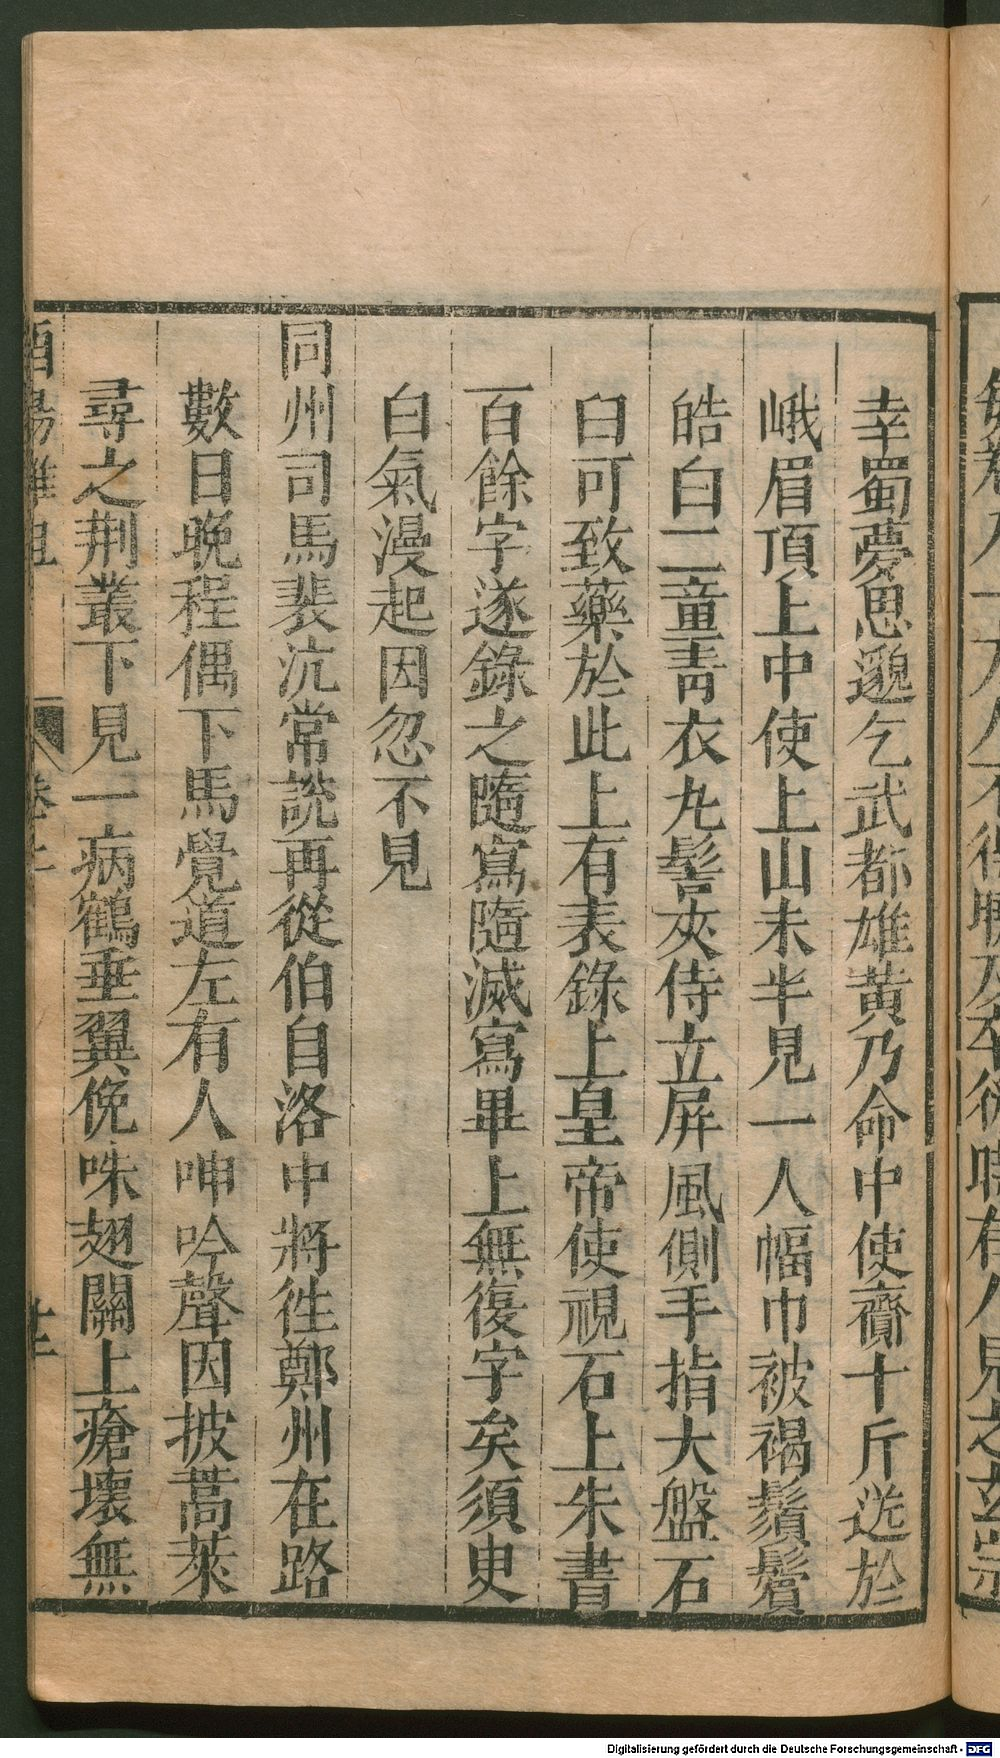 幸蜀夢思邈乞武都雄黃乃命中使齎十斤送於
峨眉頂上中使上山未半見一人幅巾被褐鬚鬢
皓白二童青衣丸髻夾侍立屏風側手指大盤石
曰可致藥於此上有表錄上皇帝使視石上朱書
百餘字遂錄之隨寫隨滅寫畢上無復字矣須臾
白氣漫起因忽不見
同州司馬裴沆常說再從伯自洛中將徃鄭州在路
數日晚程偶下馬覺道左有人呻吟聲因披蒿萊
尋之荆叢下見一病鶴垂翼俛咮翅關上瘡壞無
酉陽雜俎 卷二
Digitalisierung gefördert durch die Deutsche Forschungsgemeinschaft - DFG